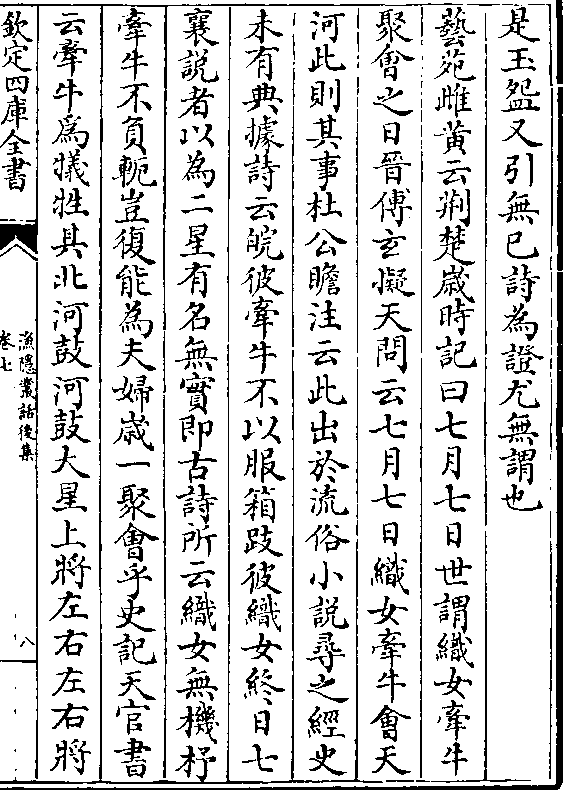 是玉盌又引無已詩為證尤無謂也
藝苑雌黃云荆楚嵗時記曰七月七日世謂織女牽牛
聚會之日晉傅玄擬天問云七月七日織女牽牛會天
河此則其事杜公瞻注云此出於流俗小說尋之經史
未有典據詩云皖彼牽牛不以服箱跂彼織女終日七
襄説者以為二星有名無實即古詩所云織女無機杼
牽牛不負軛豈復能為夫婦嵗一聚會乎史記天官書
云牽牛為犠牲其北河鼓河鼓大星上將左右左右將
欽定四庫全書
漁隱叢話後集
卷七
八